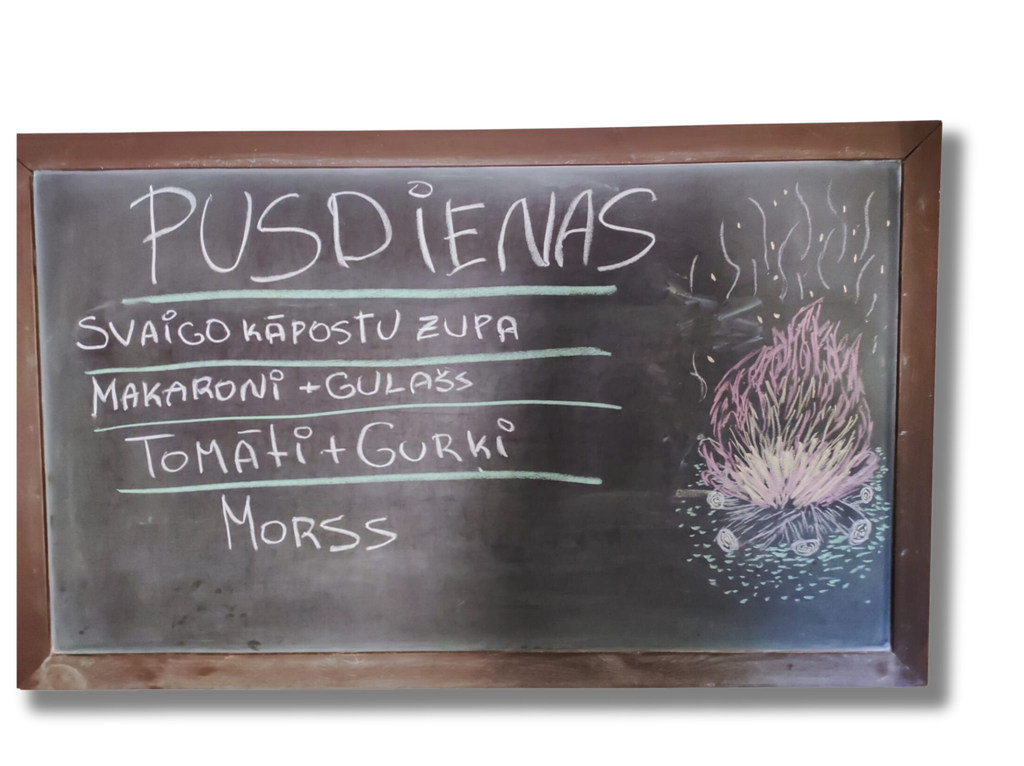 PUSDIENAS
SVAIGO KĀPOSTU ZUPA
MAKARONI + GULAŠS
TOMĀTI + GURĶI
MORSS